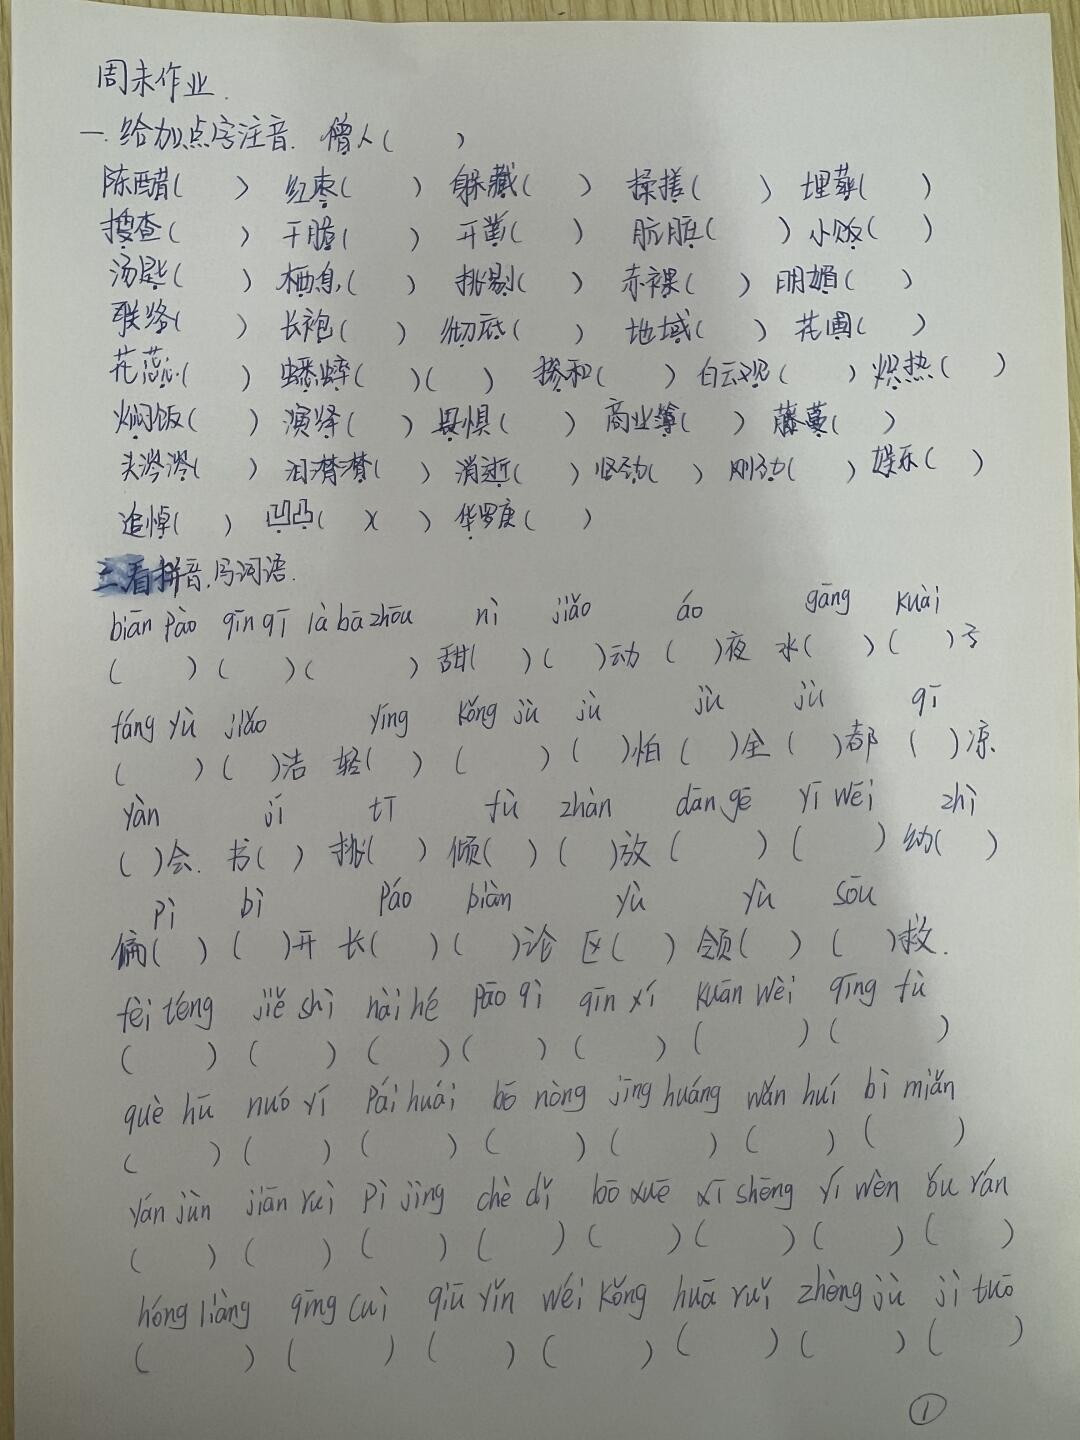 周末作业.
一.给加点字注音. 僧人( )
陈醋( ) 红枣( ) 躲藏( ) 揉搓( ) 埋葬( )
搜查( ) 干瞪( ) 开凿( ) 肮脏( ) 小贩( )
汤匙( ) 栖息( ) 挑剔( ) 赤裸( ) 明媚( )
联络( ) 长袍( ) 彻底( ) 地域( ) 花圃( )
花蕊( ) 蟋蟀( )( ) 掺和( ) 白云观( ) 炽热( )
焖饭( ) 演绎( ) 畏惧( ) 商业簿( ) 藤蔓( )
头涔涔( ) 泪潸潸( ) 消逝( ) 坚劲( ) 刚劲( ) 娱乐( )
追悼( ) 凹凸( )( ) 华罗庚( )
二.看拼音,写词语.
biān pào qīn qī là bā zhōu nì jiǎo áo gāng kuài
( ) ( )( ) 甜( ) ( )动 ( )夜 水( )( )子
fáng yù jiǎo yíng kǒng jù jù jù jù qī
( ) ( )洁 轻( ) ( ) ( )怕 ( )全 ( )都 ( )凉
yàn jí tī fù zhàn dān gē yī wēi zhì
( )会. 书( ) 挑( ) 倾( ) ( )放 ( ) ( ) 幼( )
pì bì páo biàn yù yù sōu
偏( ) ( )开 长( ) ( )论 区( ) 领( ) ( )救.
fèi téng jiě shì nài hé pāo qì qīn xí kuān wèi qīng fù
( ) ( ) ( ) ( ) ( ) ( ) ( )
què hū nuó yí pái huái bō nòng jīng huáng wǎn huí bì miǎn
( ) ( ) ( ) ( ) ( ) ( ) ( )
yán jùn jiān ruì pì jìng chè dǐ bō xuē xī shēng yí wèn ǒu rán
( ) ( ) ( ) ( ) ( ) ( ) ( ) ( )
hóng liàng qīng cuì qiū yǐn wéi kǒng huā ruǐ zhèng jù jì tuō
( ) ( ) ( ) ( ) ( ) ( ) ( )
①